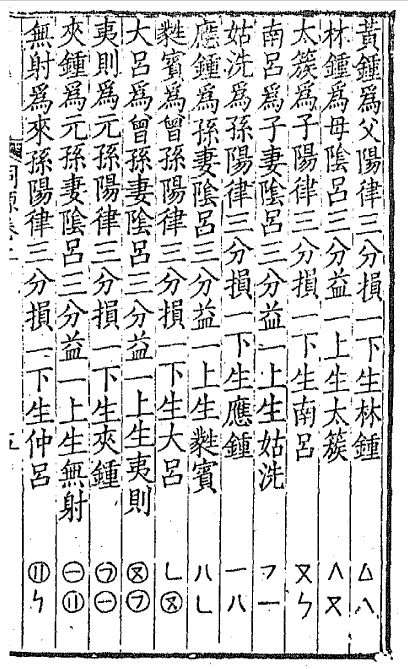 黃鍾爲父陽律三分損一下生林鍾
林鍾爲母隂呂三分益一上生太簇
太簇爲子陽律三分損一下生南呂
南呂爲子妻隂呂三分益一上生姑洗
姑洗爲孫陽律三分損一下生應鍾
應鍾爲孫妻隂呂三分益一上生蕤賓
蕤賓爲曾孫陽律三分損一下生大呂
大呂爲曾孫妻隂呂三分益一上生夷則
夷則爲元孫陽律三分損一下生夾鍾
夾鍾爲元孫妻隂呂三分益一上生無射
無射爲來孫陽律三分損一下生仲呂